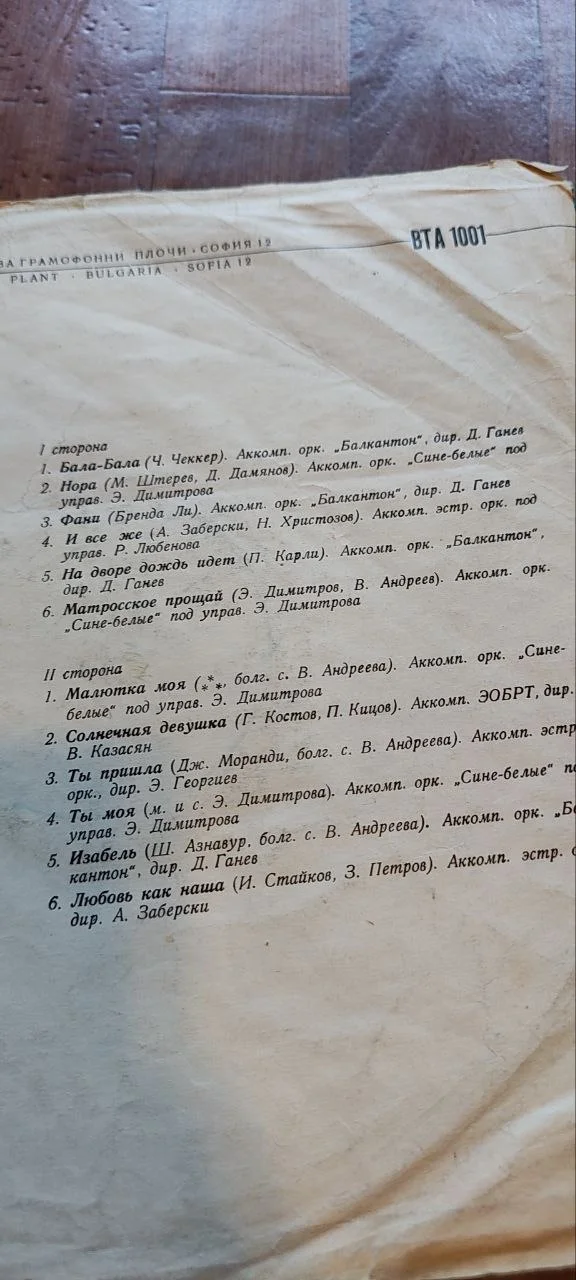 ЗА ГРАМОФОННИ ПЛОЧИ · СОФИЯ 12
PLANT · BULGARIA · SOFIA 12
ВТА 1001
I сторона
1. Бала-Бала (Ч. Чеккер). Аккомп. орк. „Балкантон“, дир. Д. Ганев
2. Нора (М. Штерев, Д. Дамянов). Аккомп. орк. „Сине-белые“ под
управ. Э. Димитрова
3. Фани (Бренда Ли). Аккомп. орк. „Балкантон“, дир. Д. Ганев
4. И все же (А. Заберски, Н. Христозов). Аккомп. эстр. орк. под
управ. Р. Любенова
5. На дворе дождь идет (П. Карли). Аккомп. орк. „Балкантон“,
дир. Д. Ганев
6. Матросское прощай (Э. Димитров, В. Андреев). Аккомп. орк.
„Сине-белые“ под управ. Э. Димитрова
II сторона
1. Малютка моя (***, болг. с. В. Андреева). Аккомп. орк. „Сине-
белые“ под управ. Э. Димитрова
2. Солнечная девушка (Г. Костов, П. Кицов). Аккомп. ЭОБРТ, дир.
В. Казасян
3. Ты пришла (Дж. Моранди, болг. с. В. Андреева). Аккомп. эстр
орк., дир. Э. Георгиев
4. Ты моя (м. и с. Э. Димитрова). Аккомп. орк. „Сине-белые“
управ. Э. Димитрова
5. Изабель (Ш. Азнавур, болг. с. В. Андреева). Аккомп. орк.
кантон“, дир. Д. Ганев
6. Любовь как наша (И. Стайков, З. Петров). Аккомп. эстр.
дир. А. Заберски